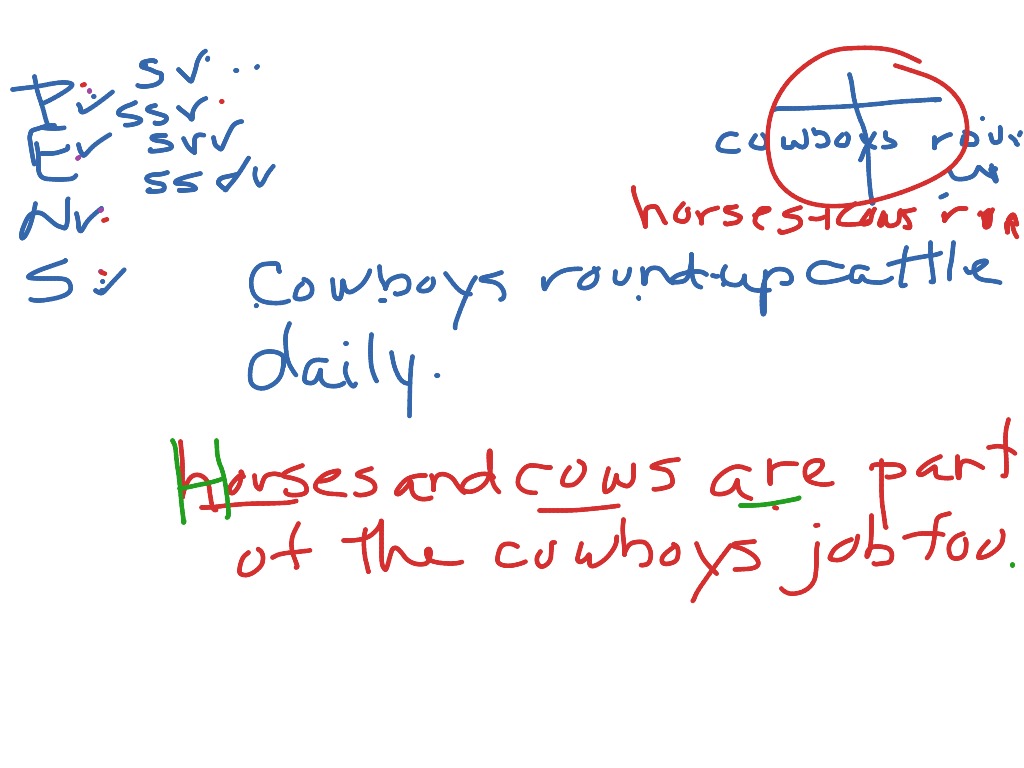 P ✓ sv
ssv
E ✓ svv
ssvv
N
S ✓
cowboys
horses + cows
Cowboys round-up cattle
daily.
Horses and cows are part
of the cowboys job too.